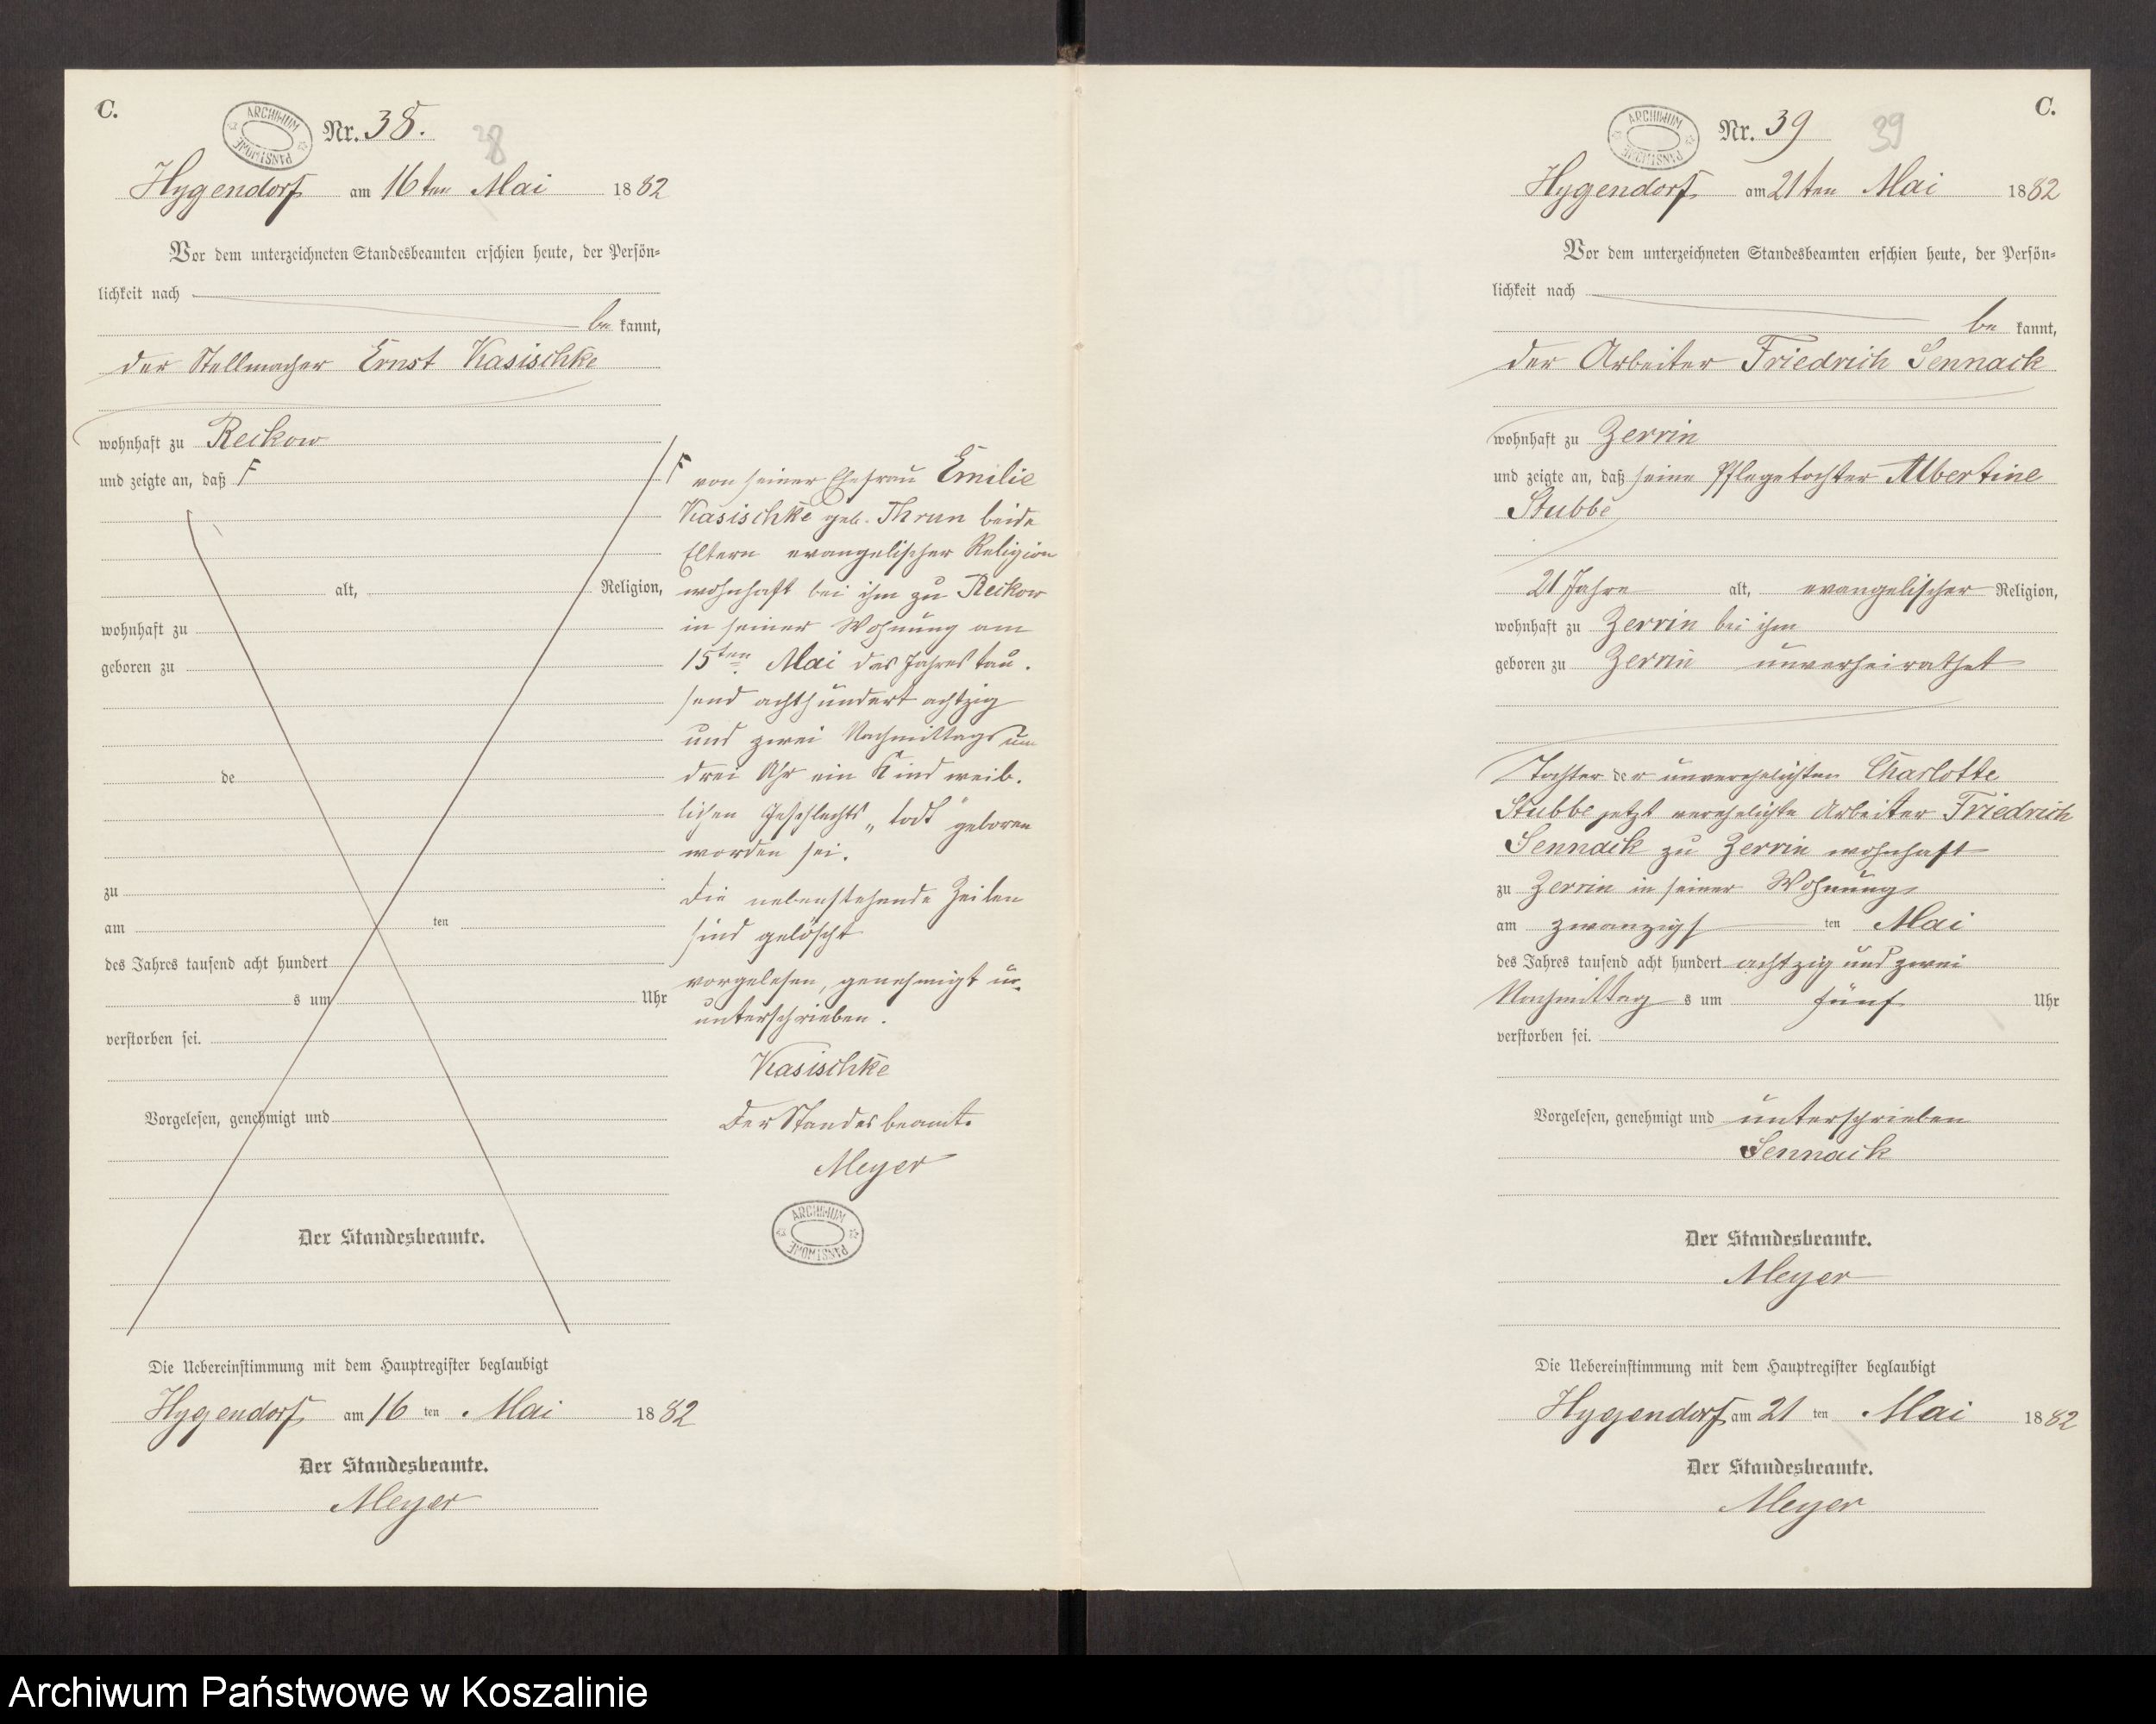 C.
ARCHIWUM PAŃSTWOWE
Nr. 38.
38
Hygendorf am 16ten Mai 1882
Vor dem unterzeichneten Standesbeamten erschien heute, der Persön-
lichkeit nach
be kannt,
der Stellmacher Ernst Kasischke
wohnhaft zu Reckow
und zeigte an, daß F
alt, Religion,
wohnhaft zu
geboren zu
de
zu
am ten
des Jahres tausend acht hundert
s um Uhr
verstorben sei.
Vorgelesen, genehmigt und
Der Standesbeamte.
F von seiner Ehefrau Emilie
Kasischke geb. Thrun beide
Eltern evangelischer Religion
wohnhaft bei ihm zu Reckow
in seiner Wohnung am
15ten Mai des Jahres tau-
send achthundert achtzig
und zwei Nachmittags um
drei Uhr ein Kind weib-
lichen Geschlechts „todt" geboren
worden sei.
Die nebenstehende Zeilen
sind gelöscht
vorgelesen, genehmigt u.
unterschrieben.
Kasischke
Der Standesbeamte
Meyer
ARCHIWUM PAŃSTWOWE
Die Uebereinstimmung mit dem Hauptregister beglaubigt
Hygendorf am 16 ten Mai 1882
Der Standesbeamte.
Meyer
C.
ARCHIWUM PAŃSTWOWE
Nr. 39
39
Hygendorf am 21ten Mai 1882
Vor dem unterzeichneten Standesbeamten erschien heute, der Persön-
lichkeit nach
be kannt,
der Arbeiter Friedrich Sennack
wohnhaft zu Zerrin
und zeigte an, daß seine Pflegetochter Albertine
Stubbe
21 Jahre alt, evangelischer Religion,
wohnhaft zu Zerrin bei ihm
geboren zu Zerrin unverheirathet
Tochter der unverehelichten Charlotte
Stubbe jetzt verehelichte Arbeiter Friedrich
Sennack zu Zerrin wohnhaft
zu Zerrin in seiner Wohnung
am zwanzigs ten Mai
des Jahres tausend acht hundert achtzig und zwei
Nachmittag s um fünf Uhr
verstorben sei.
Vorgelesen, genehmigt und unterschrieben
Sennack
Der Standesbeamte.
Meyer
Die Uebereinstimmung mit dem Hauptregister beglaubigt
Hygendorf am 21 ten Mai 1882
Der Standesbeamte.
Meyer
Archiwum Państwowe w Koszalinie